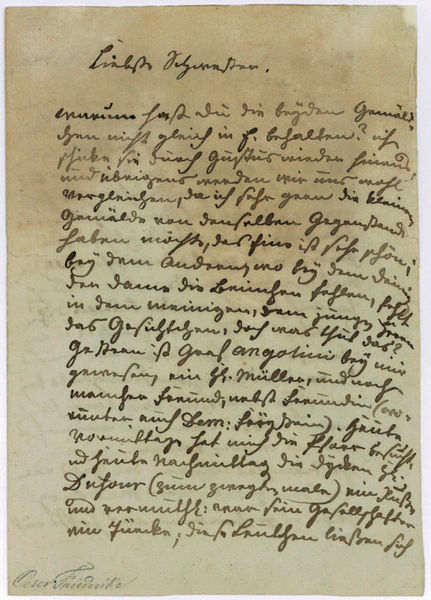 Liebste Schwester.
warum hast du die beyden Gemäld-
chen nicht gleich in behalten? ich
schicke sie durch Gustus wieder hinaus,
und übrigens werden wir uns wohl
vergleichen, da ich sehr gern die kleinen
Gemälde von denselben Gegenständen
haben möchte, das Eine ist sehr schön,
bey dem Andern, wo bey dem deinen
der Dame die Beinchen fehlen, fehlt
in dem meinigen, dem jungen Herrn
das Gesichtchen, doch was thut das?
Gestern ist Graf Angolini bey mir
gewesen, ein Th. Müller, und noch
mancher Freund, nebst Freundin (wo-
runter auch Dem: ). Heute
Vormittags hat mich die besucht
und heute Nachmittag die
Dufour (zum zweyten male) ein
und vermuthl: war sein Gesellschafter
ein ; diese Leutchen ließen sich
Oeser Friederike